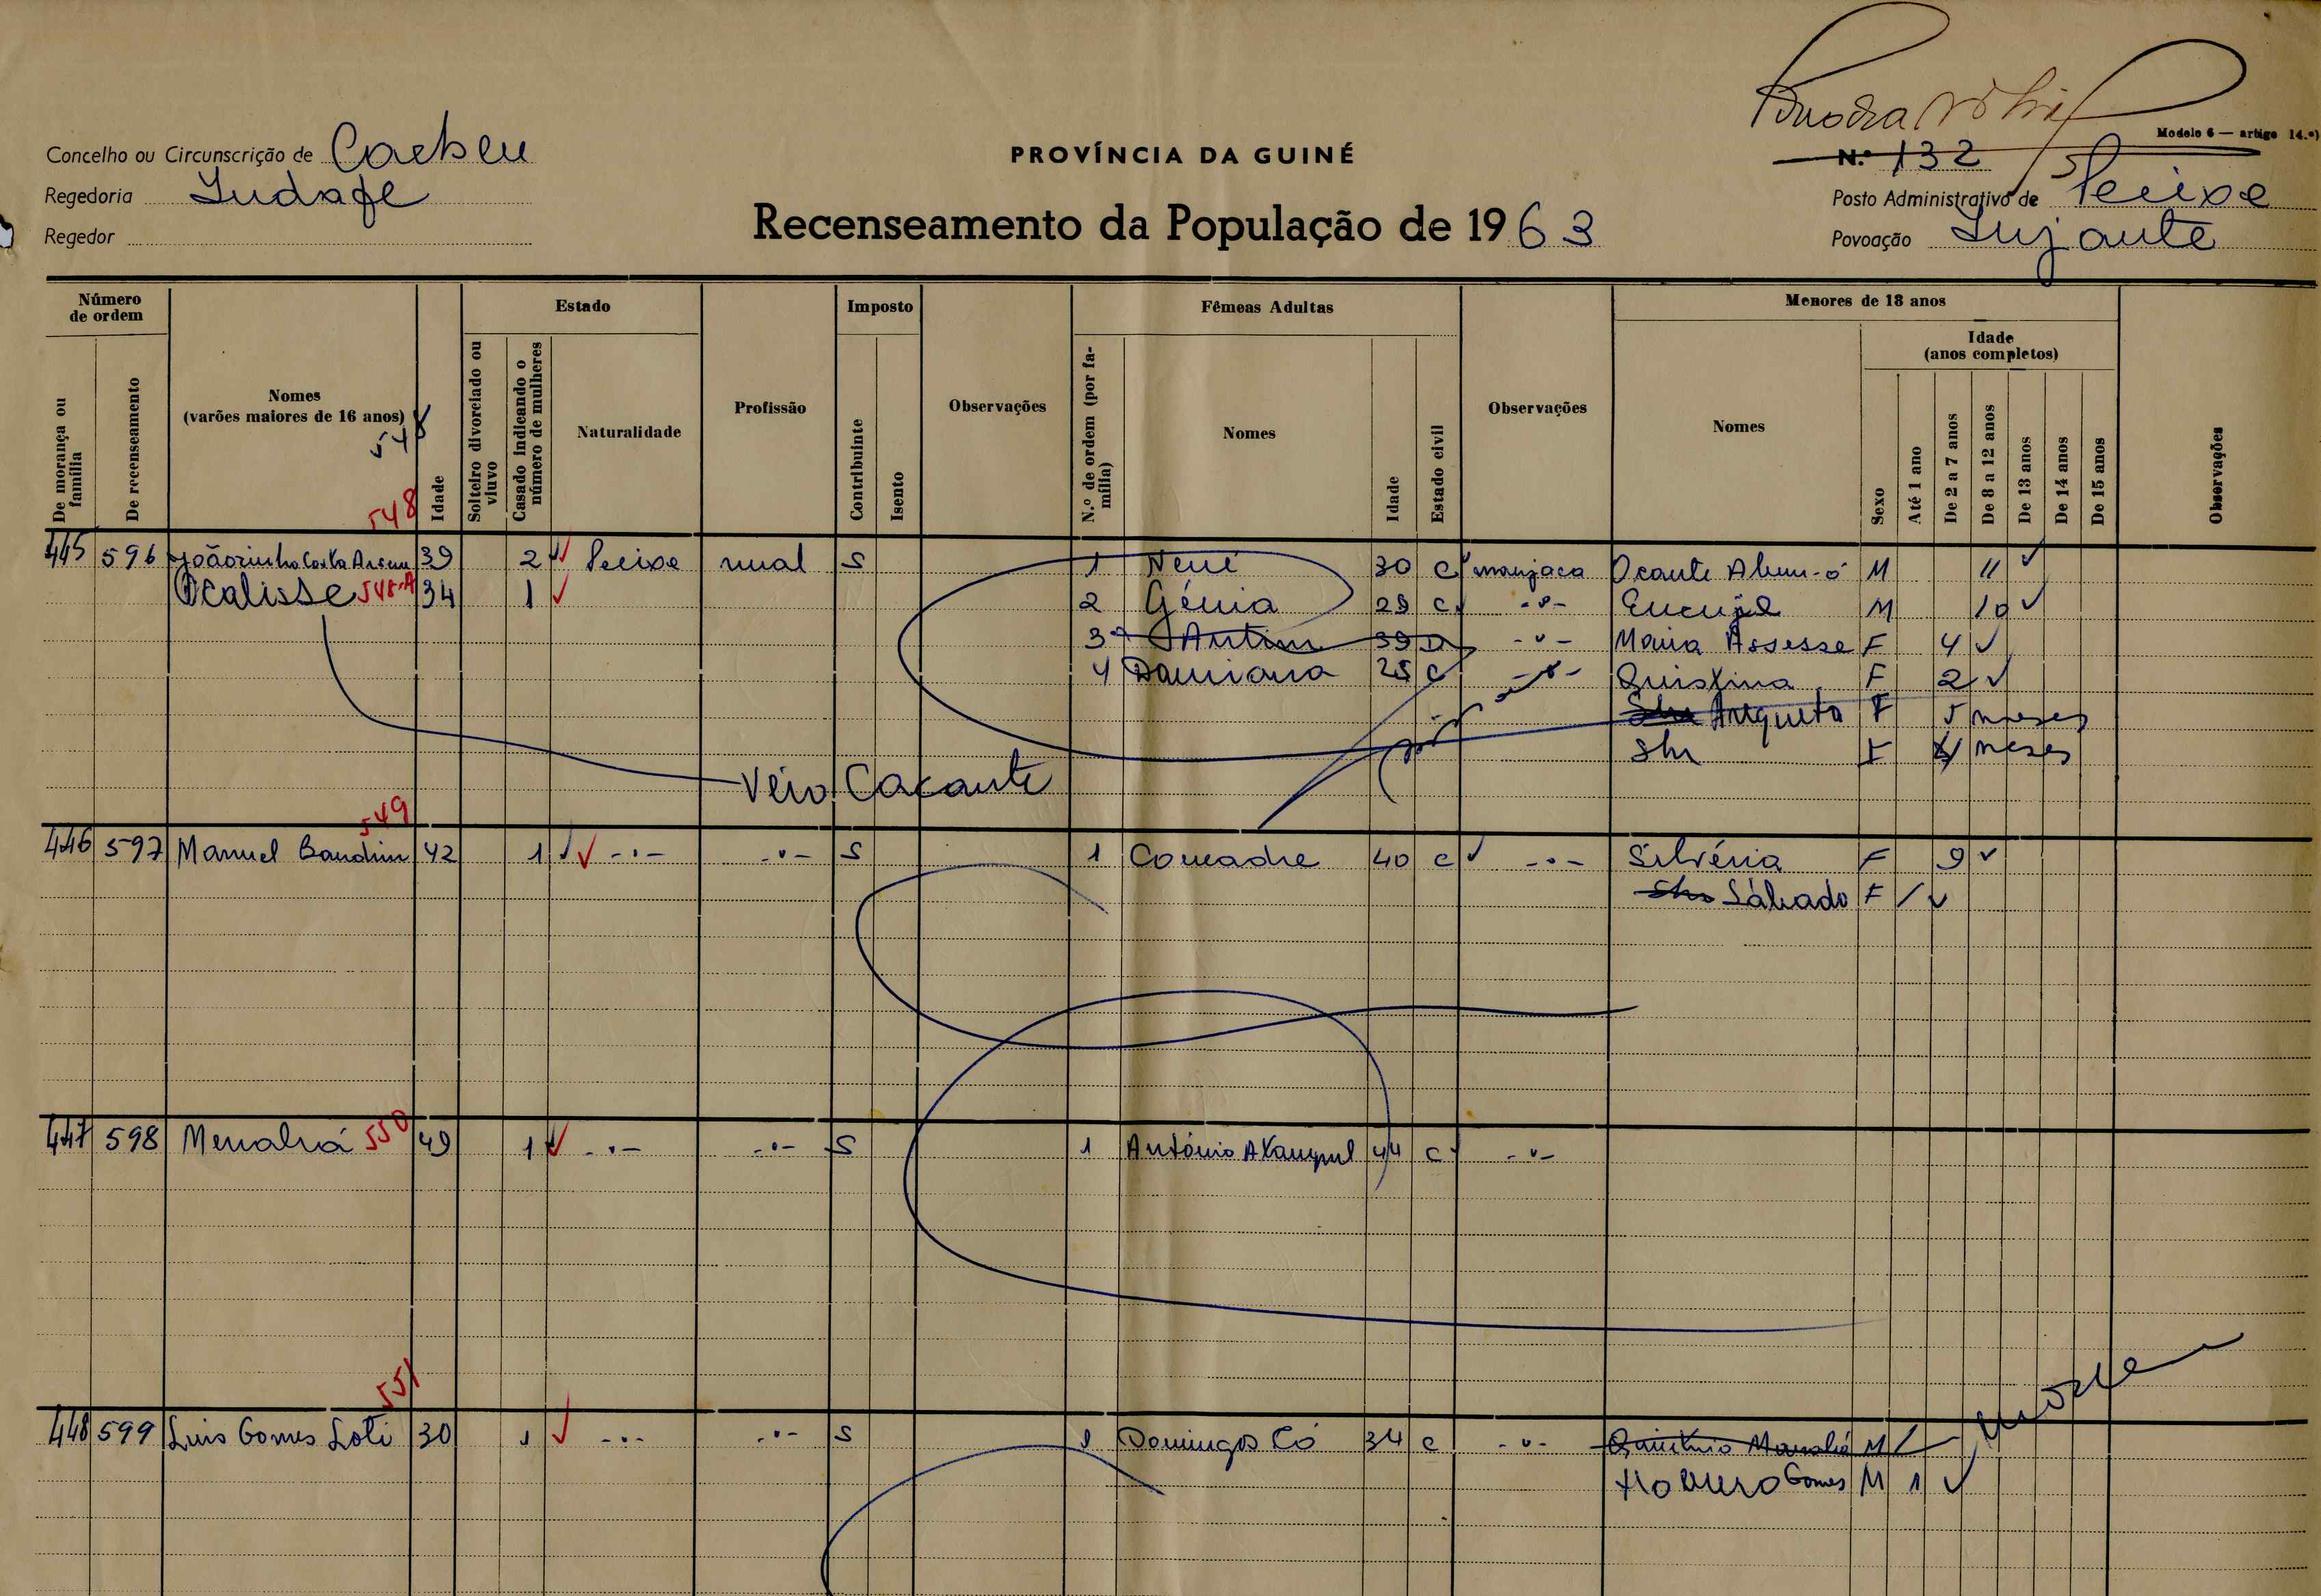 Modelo 6 — artigo 14.º)
Concelho ou Circunscrição de Cacheu
PROVÍNCIA DA GUINÉ
N.º 132
Regedoria
Posto Administrativo de Pecixe
Recenseamento da População de 1963
Regedor
Povoação
Número de ordem
Estado
Imposto
Fêmeas Adultas
Menores de 18 anos
Idade (anos completos)
De morança ou família
De recenseamento
Nomes (varões maiores de 16 anos)
548
Idade
Solteiro divorciado ou viuvo
Casado indicando o número de mulheres
Naturalidade
Profissão
Contribuinte
Isento
Observações
N.º de ordem (por família)
Nomes
Idade
Estado civil
Observações
Nomes
Sexo
Até 1 ano
De 2 a 7 anos
De 8 a 12 anos
De 13 anos
De 14 anos
De 15 anos
Observações
548
445 596 Joãozinho Costa 39 2 Pecixe rural S 1 Nené 30 C manjaca Ocante M 11
Ocalisse 548-A 34 1 2 Génia 28 C -"- M 10
3 39 D -"- Maria Assesse F 4
4 Damiana 25 C -"- Quistina F 2
F 5 meses
F meses
Veio Cacante
549
446 597 Manuel Bandim 42 1 -"- -"- S 1 Comadre 40 C -"- Silvéria F 9
Sábado F
447 598 550 49 1 -"- -"- S 1 António 44 C -"-
551
448 599 Luis Gomes Loti 30 1 -"- -"- S 1 Domingas Có 34 C -"- M
Gomes M 1